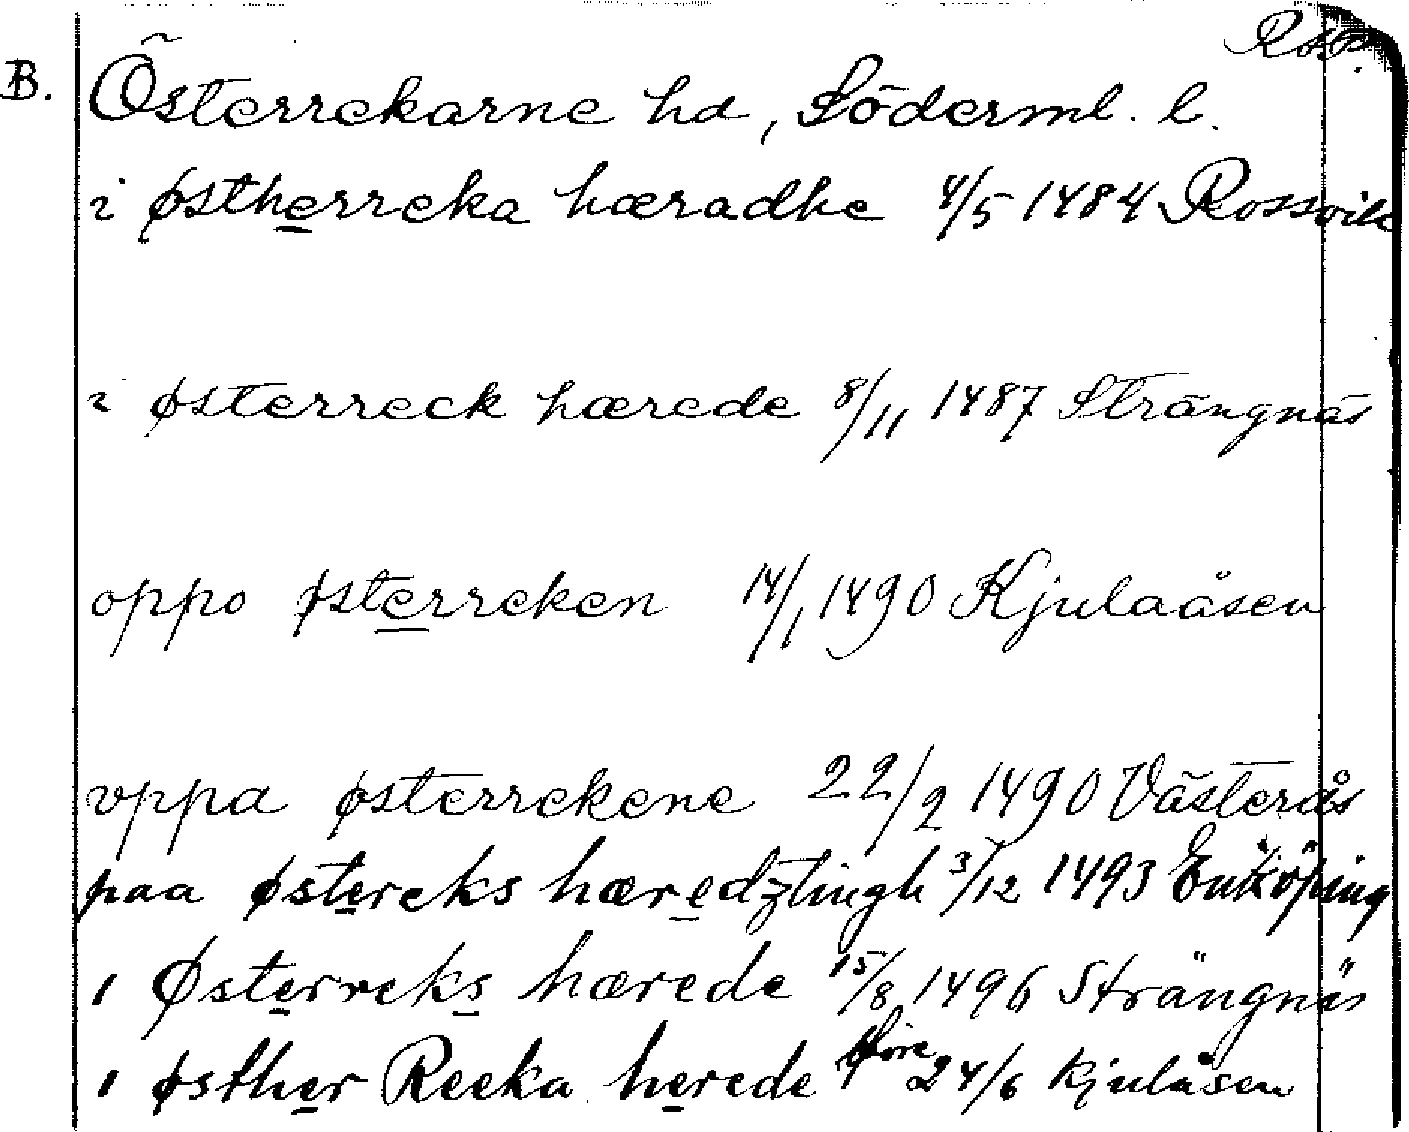 RAP.
B. Österrekarne hd, Söderml. l.
i østherreka hæradhe 4/5 1484 Rossvik
i østerreck hærede 8/11 1487 Strängnäs
oppo østerreken 14/1 1490 Kjulaåsen
vppa østerrekene 22/2 1490 Västerås
paa østereks hæredztingh 3/12 1493 Enköping
i Østerreks hærede 15/8 1496 Strängnäs
i østher Reeka herede före 24/6 Kjulåsen